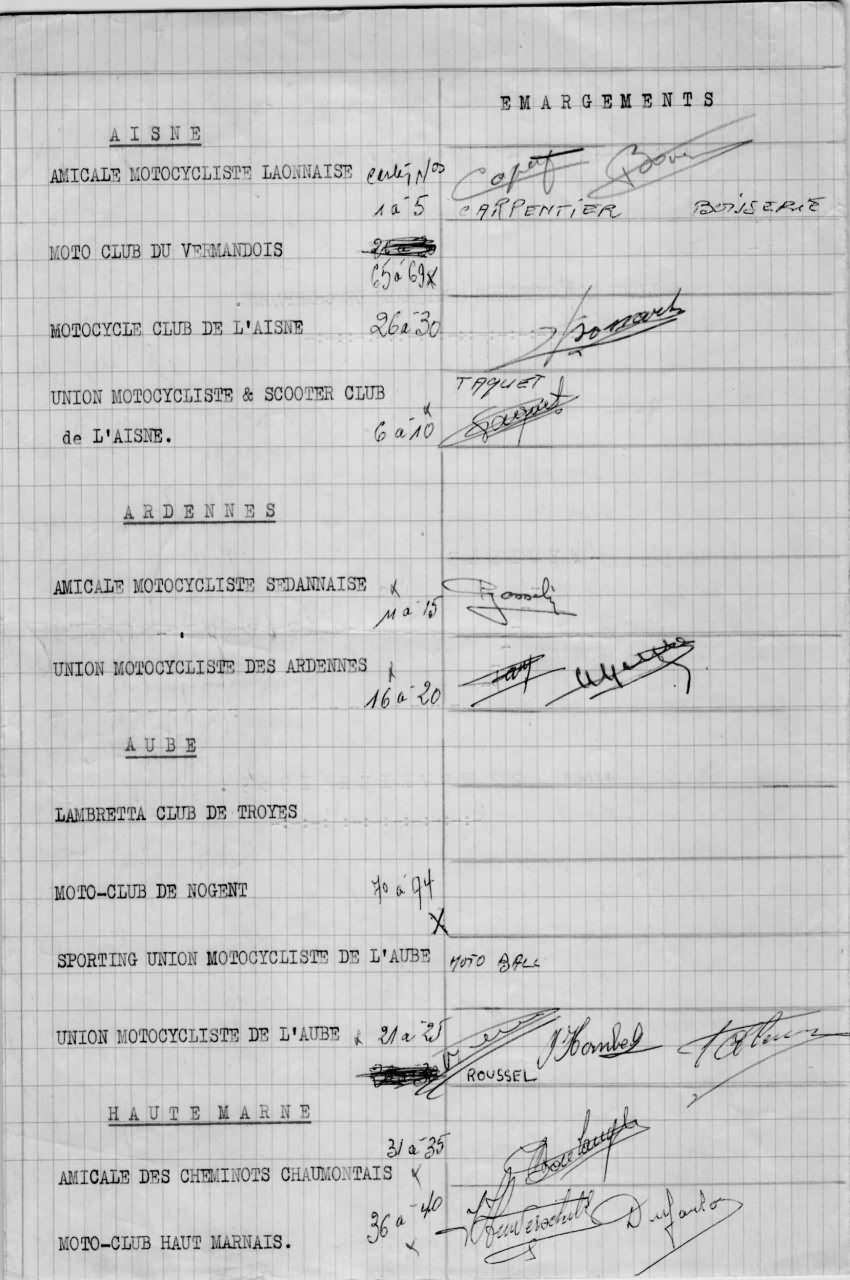 EMARGEMENTS
AISNE
AMICALE MOTOCYCLISTE LAONNAISE cartes Nos
1 à 5 CARPENTIER BOISSERIE
MOTO CLUB DU VERMANDOIS
65 à 69 x
MOTOCYCLE CLUB DE L'AISNE 26 à 30
TAQUET
UNION MOTOCYCLISTE & SCOOTER CLUB x
de L'AISNE. 6 à 10
ARDENNES
AMICALE MOTOCYCLISTE SEDANNAISE x
11 à 15
UNION MOTOCYCLISTE DES ARDENNES x
16 à 20
AUBE
LAMBRETTA CLUB DE TROYES
MOTO-CLUB DE NOGENT
X
SPORTING UNION MOTOCYCLISTE DE L'AUBE MOTO BALL
UNION MOTOCYCLISTE DE L'AUBE x 21 à 25
ROUSSEL
HAUTE MARNE
31 à 35
AMICALE DES CHEMINOTS CHAUMONTAIS x
36 à 40
MOTO-CLUB HAUT MARNAIS. x